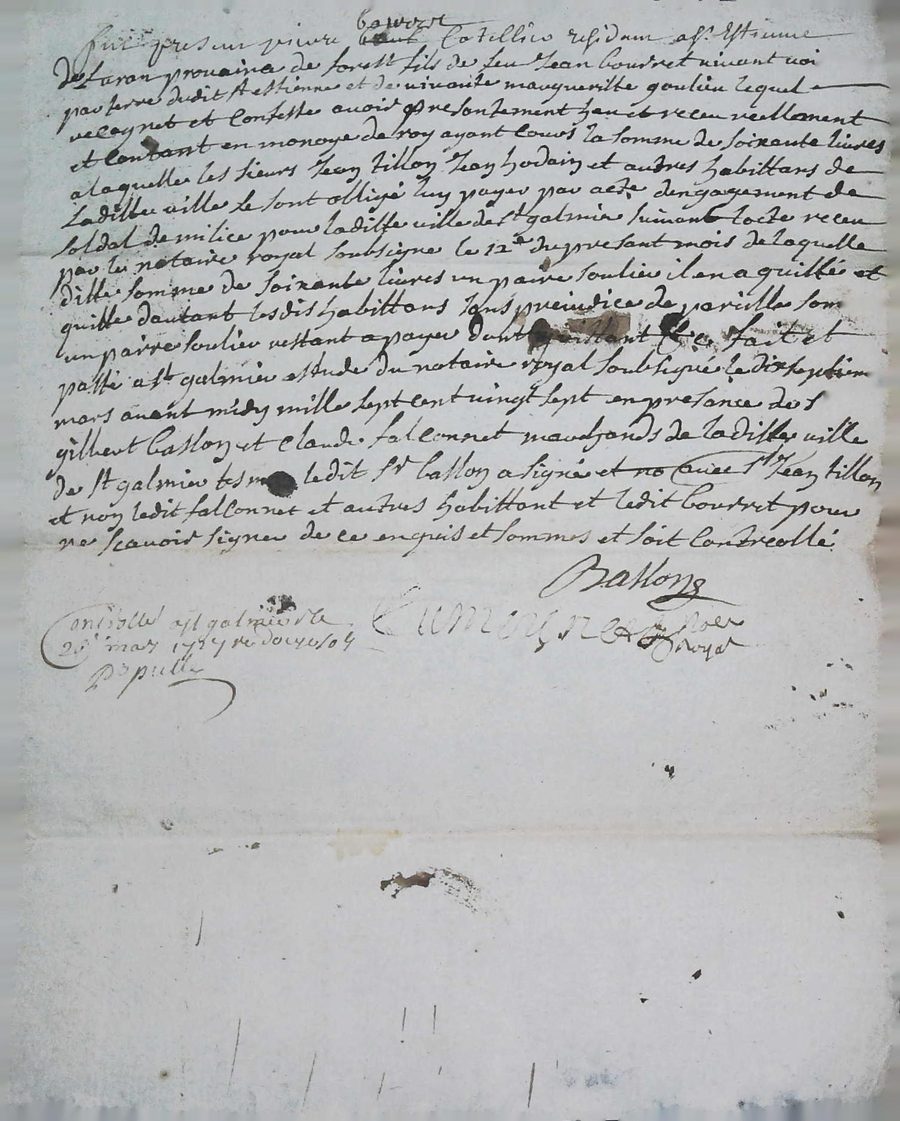 bourret
fut presan pierre Cotellier residant a St Estienne
de furan provaince de forest fils de feu Jean bourret vivant voi
par terre dudit St estienne et de vivante margueritte goulieu lequel
recognet et Confesse avoir presentement heu et receu reellement
et Contant en monoye de roy ayant Cours la somme de soixante livres
a laquelle les sieurs Jean tillon Jean hodain et autres habittans de
Laditte ville se sont obligé luy payer par acte dangagement de
soldat de milice pour laditte ville de st galmier suivant lacte receu
par le notaire royal soubsigne le 12e du presant mois de laquelle
ditte somme de soixante livres un paire soulier il en a quitté et
quitte dautant lesdis habittans sans preiudice de pareille som
un pairre soulier restant a payer dont fait et
passé a st galmier estude du notaire royal soubsigné le dixseptiem
mars avant midy mille sept cent vingt sept en presance de s
gilbert basson et Claude falconnet marchands de laditte ville
de st galmier tesm ledit sr basson a signé et no avec sr Jean tillon
et non ledit falconnet et autres habittant et ledit bourret pour
ne scavoir signer de ce enquis et sommes et soit Controllé
Basson
Controllé a st galmier le
28e mars 1727 re douze sols
notr
royal